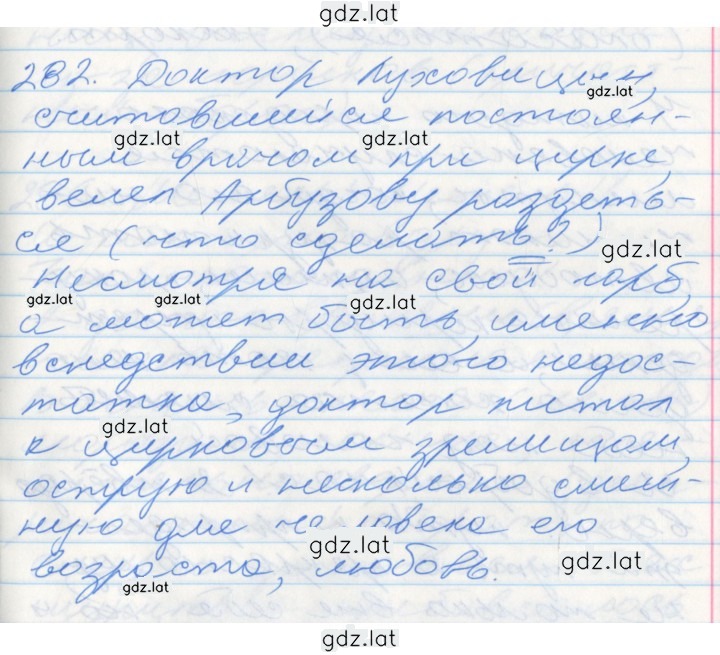 gdz.lat
282. Доктор Луховицын,
gdz.lat
считавшийся постоян-
gdz.lat gdz.lat
ным врачом при цирке,
велел Арбузову раздеть-
ся (что сделать?)
gdz.lat
Несмотря на свой горб,
gdz.lat gdz.lat gdz.lat
а может быть, именно
вследствии этого недос-
татка, доктор питал
gdz.lat
к цирковым зрелищам,
острую и несколько смеш-
ную для человека его
gdz.lat gdz.lat
возраста, любовь.
gdz.lat
gdz.lat